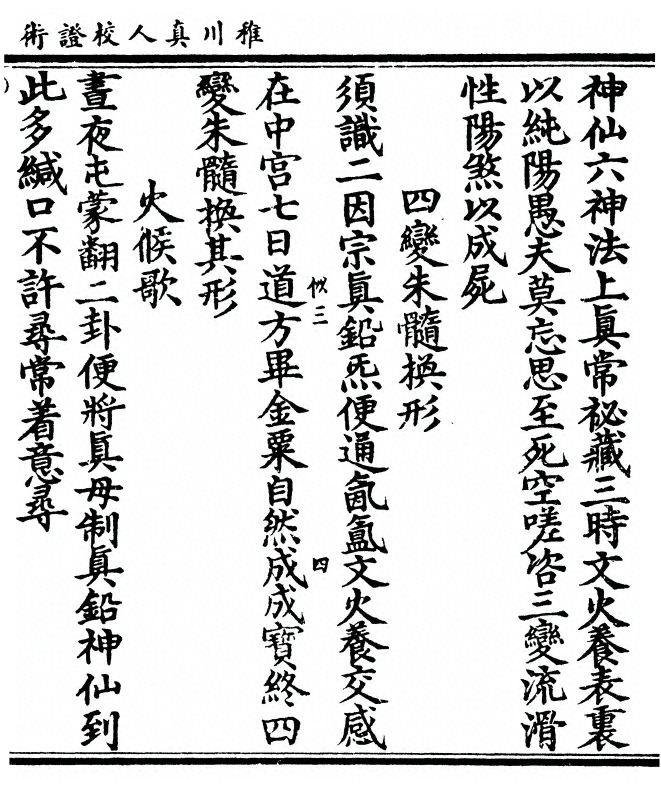 稚川真人校證術
神仙六神法上眞常祕藏三時文火養表裏
以純陽愚夫莫忘思至死空嗟咨三變流滑
性陽煞以成屍
四變朱髓換形
須識二因宗眞鉛炁便通氤氳文火養交感
在中宮七日道方畢金粟自然成成寶終四
變朱髓換其形
火候歌
晝夜屯蒙翻二卦便將眞母制眞鉛神仙到
此多緘口不許尋常着意尋
似三
四